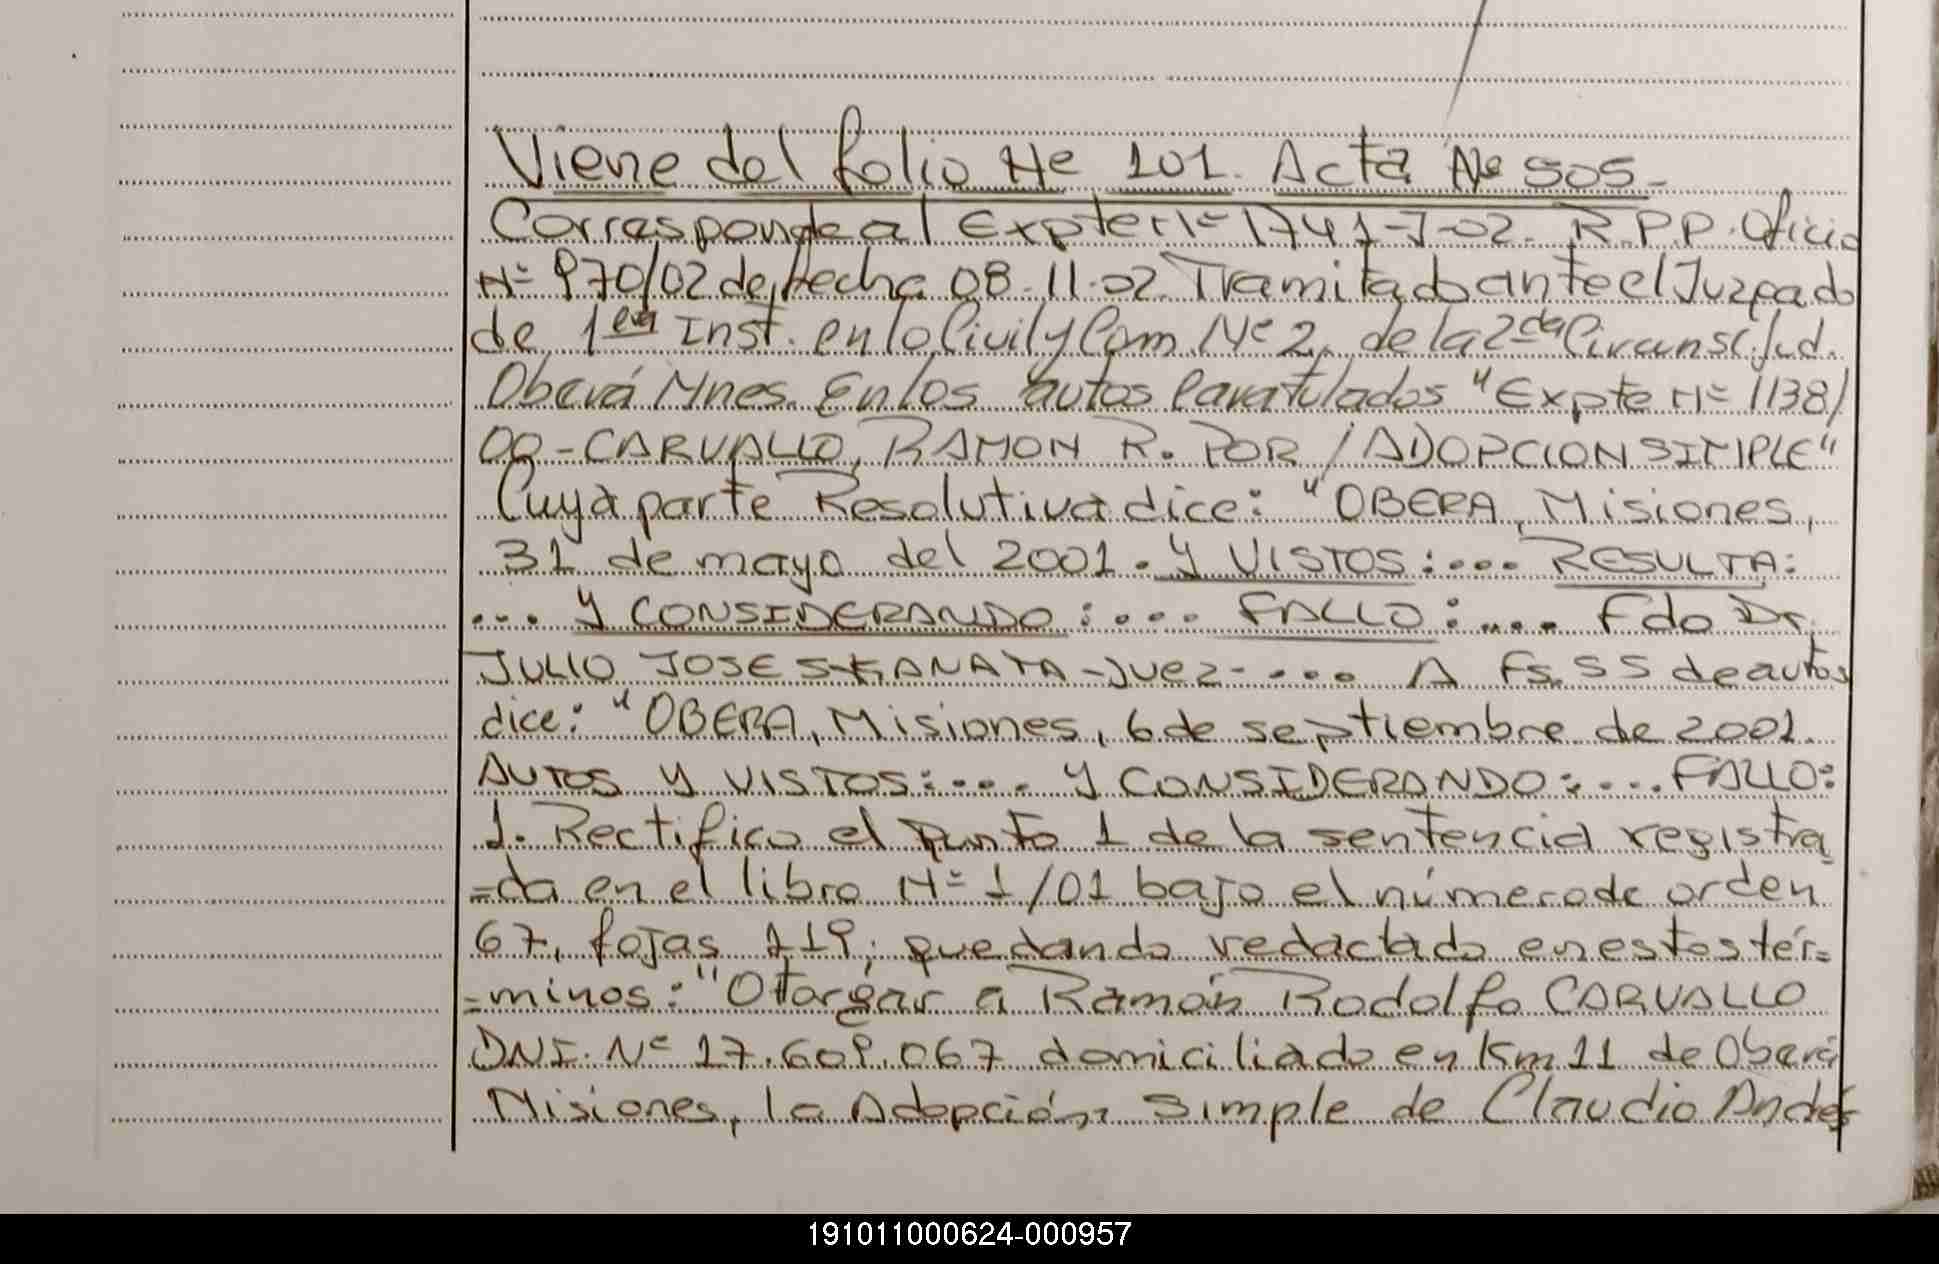 Viene del folio Nº 101. Acta Nº 505.
Corresponde al Expte Nº 1741-J-02. R.P.P. Oficio
Nº 970/02 de fecha 08.11.02. Tramitado ante el Juzgado
de 1era Inst. en lo Civil y Com. Nº 2, de la 2da Circunsc. Jud.
Oberá Mnes. En los autos Caratulados "Expte Nº 1138/
00 - CARVALLO, RAMON R. POR / ADOPCION SIMPLE"
Cuya parte Resolutiva dice: "OBERA, Misiones,
31 de mayo del 2001. Y VISTOS:... RESULTA:
... Y CONSIDERANDO:... FALLO:.... Fdo Dr.
JULIO JOSE SKANATA - Juez-.... A Fs. 55 de autos
dice: "OBERA, Misiones, 6 de septiembre de 2001.
AUTOS Y VISTOS:.... Y CONSIDERANDO:.... FALLO:
1. Rectifico el punto 1 de la sentencia registra
=da en el libro Nº 1/01 bajo el número de orden
67, fojas 119; quedando redactado en estos tér=
=minos: "Otorgar a Ramón Rodolfo CARVALLO
DNI. Nº 17.609.067 domiciliado en Km 11 de Oberá
Misiones, la Adopción Simple de Claudio Andrés
191011000624-000957